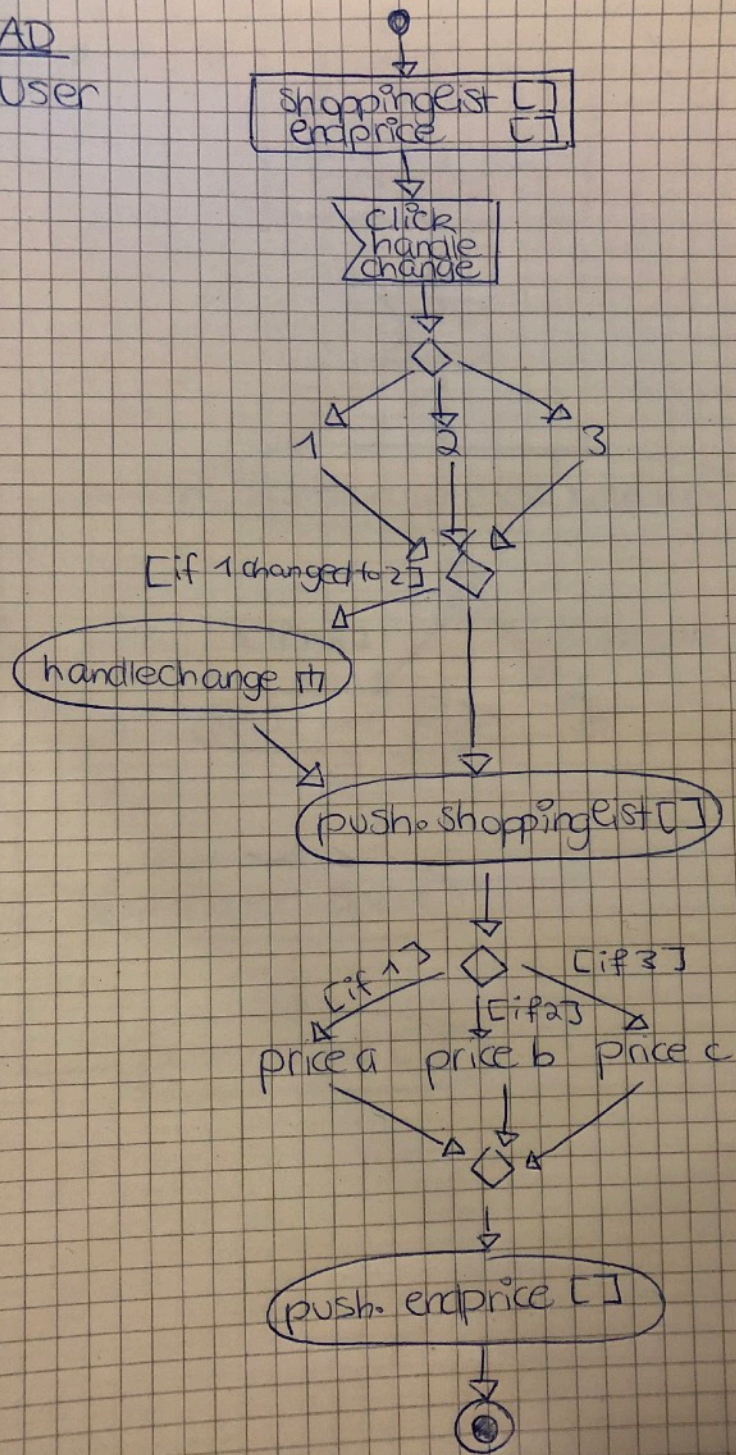 AD
User
shoppinglist []
endprice []
click
handle
change
1 2 3
[if 1 changed to 2]
handlechange
push. shoppinglist []
[if 1]
[if 2]
[if 3]
price a price b price c
push. endprice []